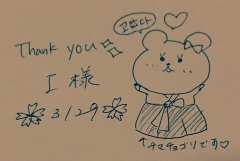 고맙다
Thank you
I 様
3/29
↑チマチョゴリです♡